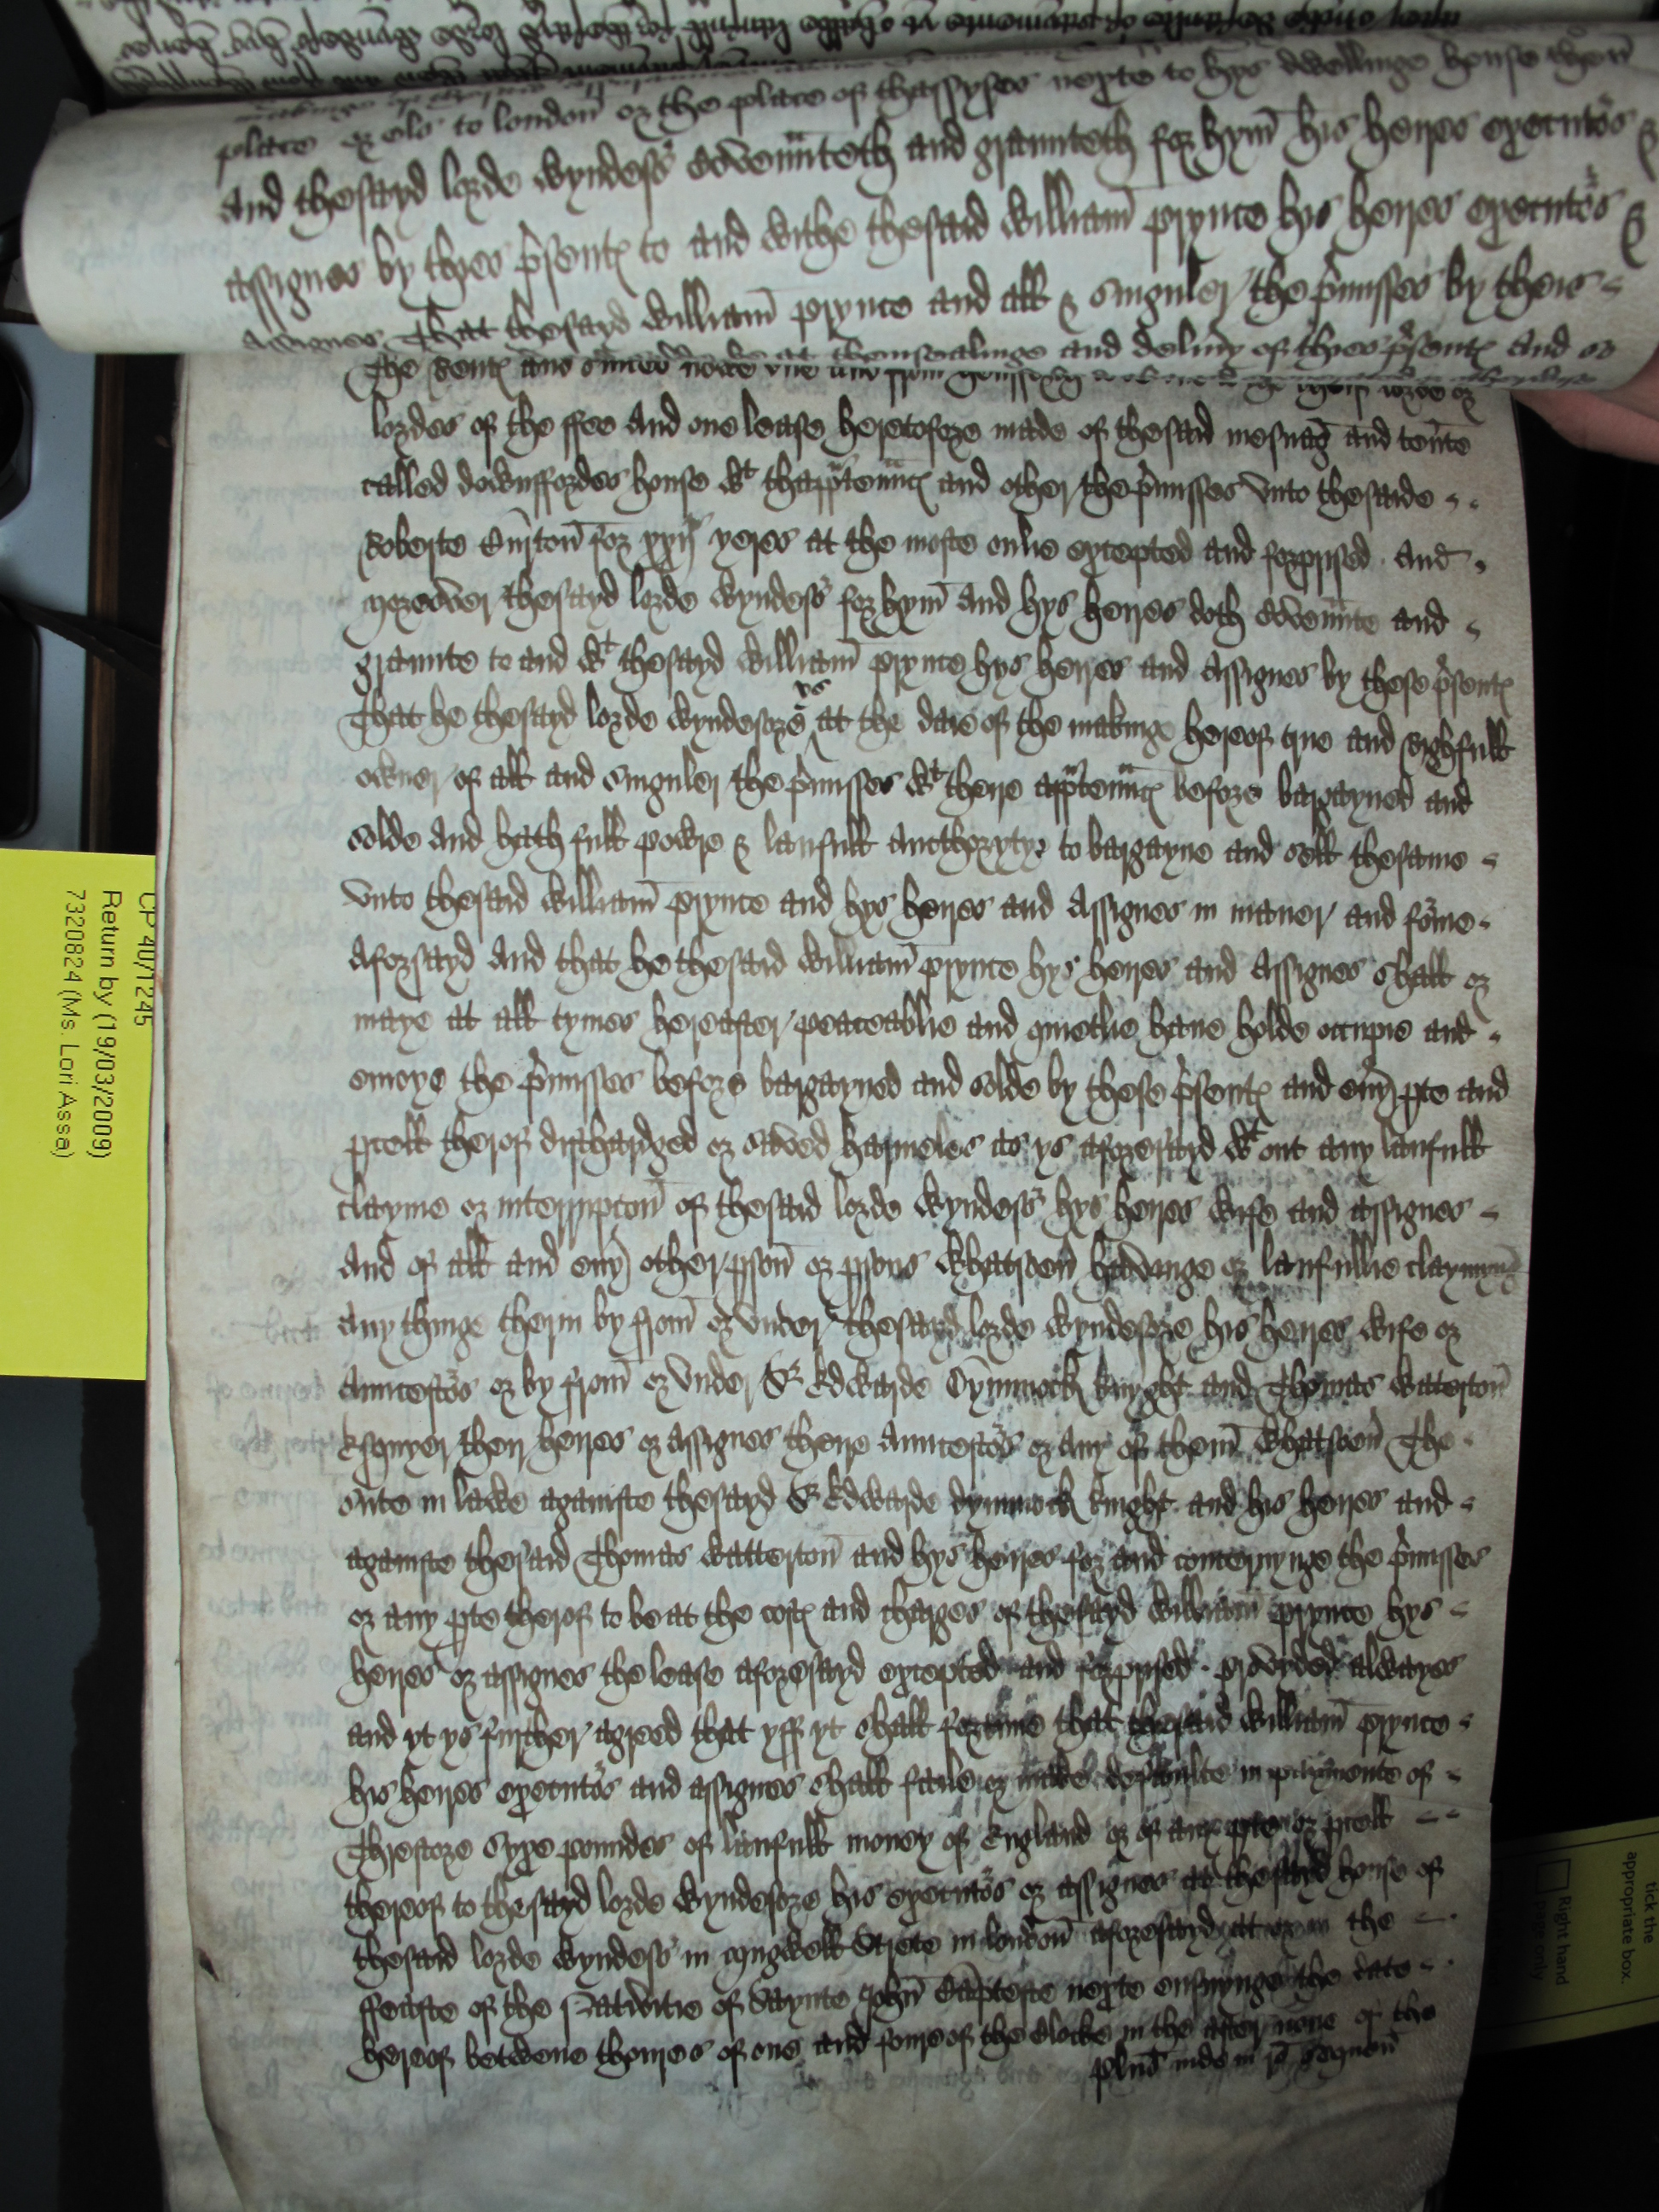 place or els to london or the place of thassyses nexte to hys dwellinge house then
And thesayd lorde wyndesor covenñteth and graunteth for hym his heyres executors &
assignes by thyes p̃sents to and withe thesaid william prynce hys heyres executors &
Assignes That thesayd william prynce and all & singuler the p̃misses by theis
themsealinge and deliṽy of thyes p̃sents And
The Rents and
lordes of the ffee And one lease heretofore made of thesaid mesuag̃ and teñte
called downffordes house wt thapp̃teñncs and other the p̃misses vnto thesaide
Roberte for xxij yeres at the moste onlie excepted and forprised And
moreover thesayd lorde wyndesor for hym and hys heyres doth covenñte and
graunte to and wt thesayd william prynce hys heyres and Assignes by these p̃sents
That he thesayd lorde wyndesore ys at the date of the makinge hereof true and Rightfull
owner of all and Singuler the p̃misses wt theire app̃teñncs before bargayned and
solde And hath full powre & laufull Aucthorytye to bargayne and sell thesame
vnto thesaid william prynce and hys heyres and Assignes in maner and forme
Aforsayd And that he thesaid william prynce hys heyres and Assignes shall or
maye at all tymes hereafter peaceablie and quietlie haue holde occupie and
enioye the p̃misses before bargayned and solde by these p̃sents and eṽy pte and
pcell therof dischardged or saved harmeles as ys aforesayd wt out any laufull
clayme or interrupcon̄ of thesaid lorde wyndesor hys heyres wife and assignes
And of all and eṽy other pson̄ or psons whatsoeṽ havinge or laufullie claymyng
Any thinge therin by from̄ or vnder thesayd lorde wyndesore his heyres wife or
Auncestors or by from̄ or vnder Sr Edwarde Dymmock knyght and Thomas watterton̄
Esquyer their heyres or Assignes theire Auncestors or any of them̄ whatsoeṽ The
suite in lawe againste thesayd Sr Edwarde dymmock knight and his heyres and
againste thesaid Thomas watterton̄ and hys heyres for and concernynge the p̃misses
or any pte therof to be at the costs and charges of thesayd william prynce hys
heyres or assignes the lease aforesayd excepted and forprised provyded alwayes
and yt ys further agreed that yff yt shall fortune that thesaid william prynce
his heyres executors and assignes shall faile or make defaulte in paymente of
Threscore Syxe poundes of laufull money of England or of any pte or pcell
thereof to thesayd lorde wyndesore his executors or assignes at thesayd house of
thesaid lorde wyndesor in mugwell Strete in london̄ aforesayd at or in the
ffeaste of the Nativitie of Saynte John̄ Bapteste nexte ensuynge the date
hereof betwene thoures of one and foure of the Clocke in the after none of the
plus̃ inde in ro sequen̄
CP 40/1245
Return by (19/03/2009)
7320824 (Ms. Lori Assa)
tick the
appropriate box.
Right hand
page only